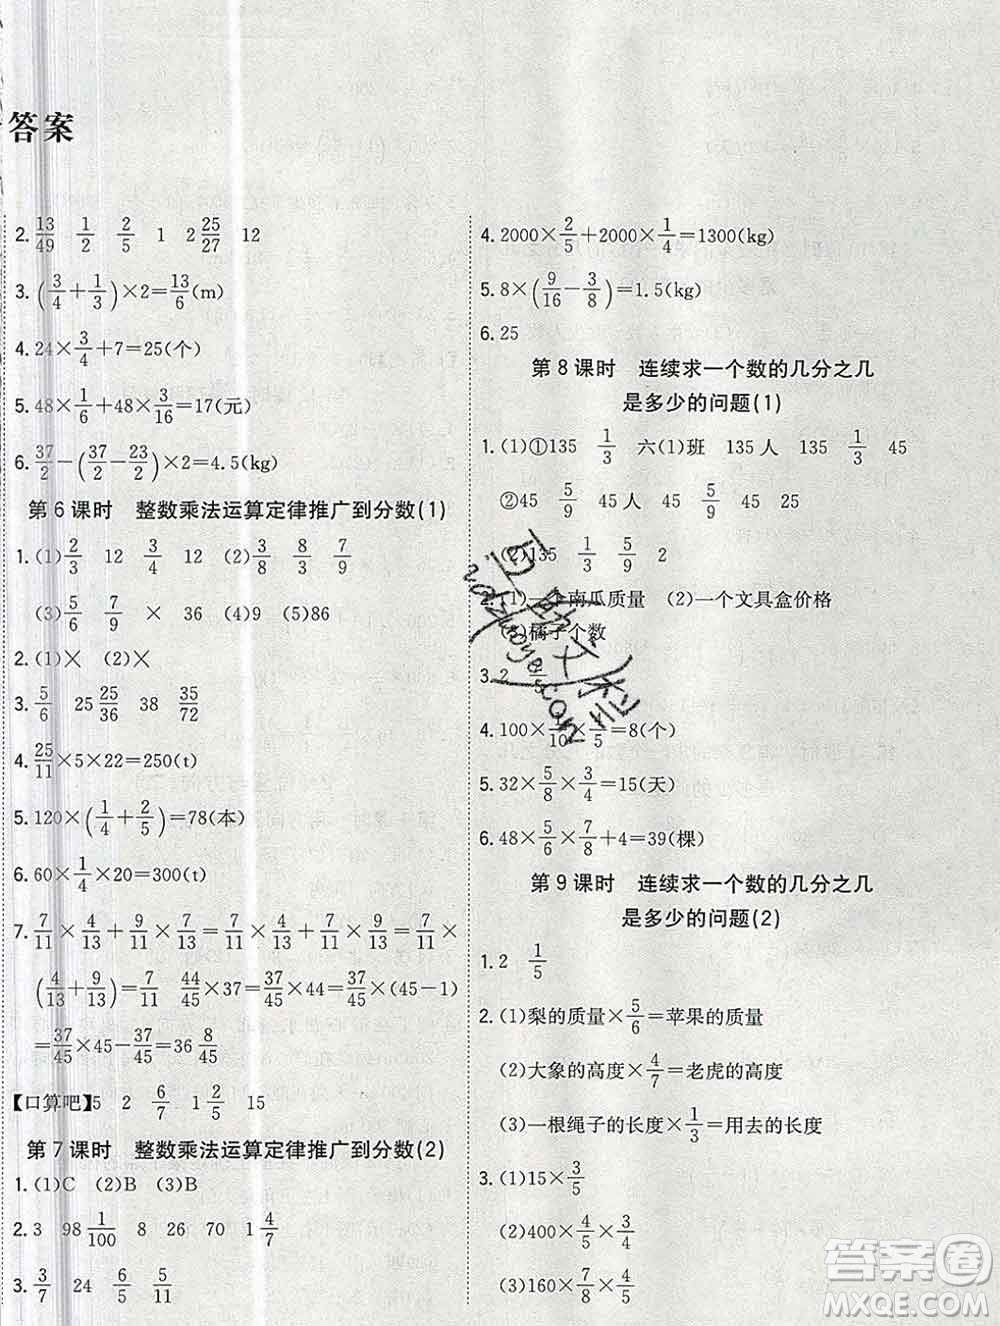 答案
2. 13/49 1/2 2/5 1 2 25/27 12
3. (3/4+1/3)×2=13/6(m)
4. 24×3/4+7=25(个)
5. 48×1/6+48×3/16=17(元)
6. 37/2-(37/2-23/2)×2=4.5(kg)
第 6 课时 整数乘法运算定律推广到分数(1)
1. (1)2/3 12 3/4 12 (2)3/8 8/9 7/9
(3)5/6 7/9 × 36 (4)9 (5)86
2. (1)× (2)×
3. 5/6 25 25/36 38 35/72
4. 25/11×5×22=250(t)
5. 120×(1/4+2/5)=78(本)
6. 60×1/4×20=300(t)
7. 7/11×4/13+9/13×7/11=7/11×4/13+9/13×7/11=7/11×
(4/13+9/13)=7/11 44/45×37=37/45×44=37/45×(45-1)
=37/45×45-37/45=36 8/45
【口算吧】5 2 6/7 1 2/5 15
第 7 课时 整数乘法运算定律推广到分数(2)
1. (1)C (2)B (3)B
2. 3 98 1/100 8 26 70 1 4/7
3. 3/7 24 6/5 5/11
4. 2000×2/5+2000×1/4=1300(kg)
5. 8×(9/16-3/8)=1.5(kg)
6. 25
第 8 课时 连续求一个数的几分之几
是多少的问题(1)
1. (1)①135 1/3 六(1)班 135人 135 1/3 45
②45 5/9 45 5/9
(2)135 1/3 5/9 2
2. (1)一个南瓜质量 (2)一个文具盒价格
(3)橘子个数
3. 2
4. 100× /10× /5=8(个)
5. 32×5/8×3/4=15(天)
6. 48×5/6×7/8+4=39(棵)
第 9 课时 连续求一个数的几分之几
是多少的问题(2)
1. 2 1/5
2. (1)梨的质量×5/6=苹果的质量
(2)大象的高度×4/7=老虎的高度
(3)一根绳子的长度×1/3=用去的长度
3. (1)15×3/5
(2)400×4/5×3/4
(3)160×7/8×4/5
答案圈
MXQE.COM